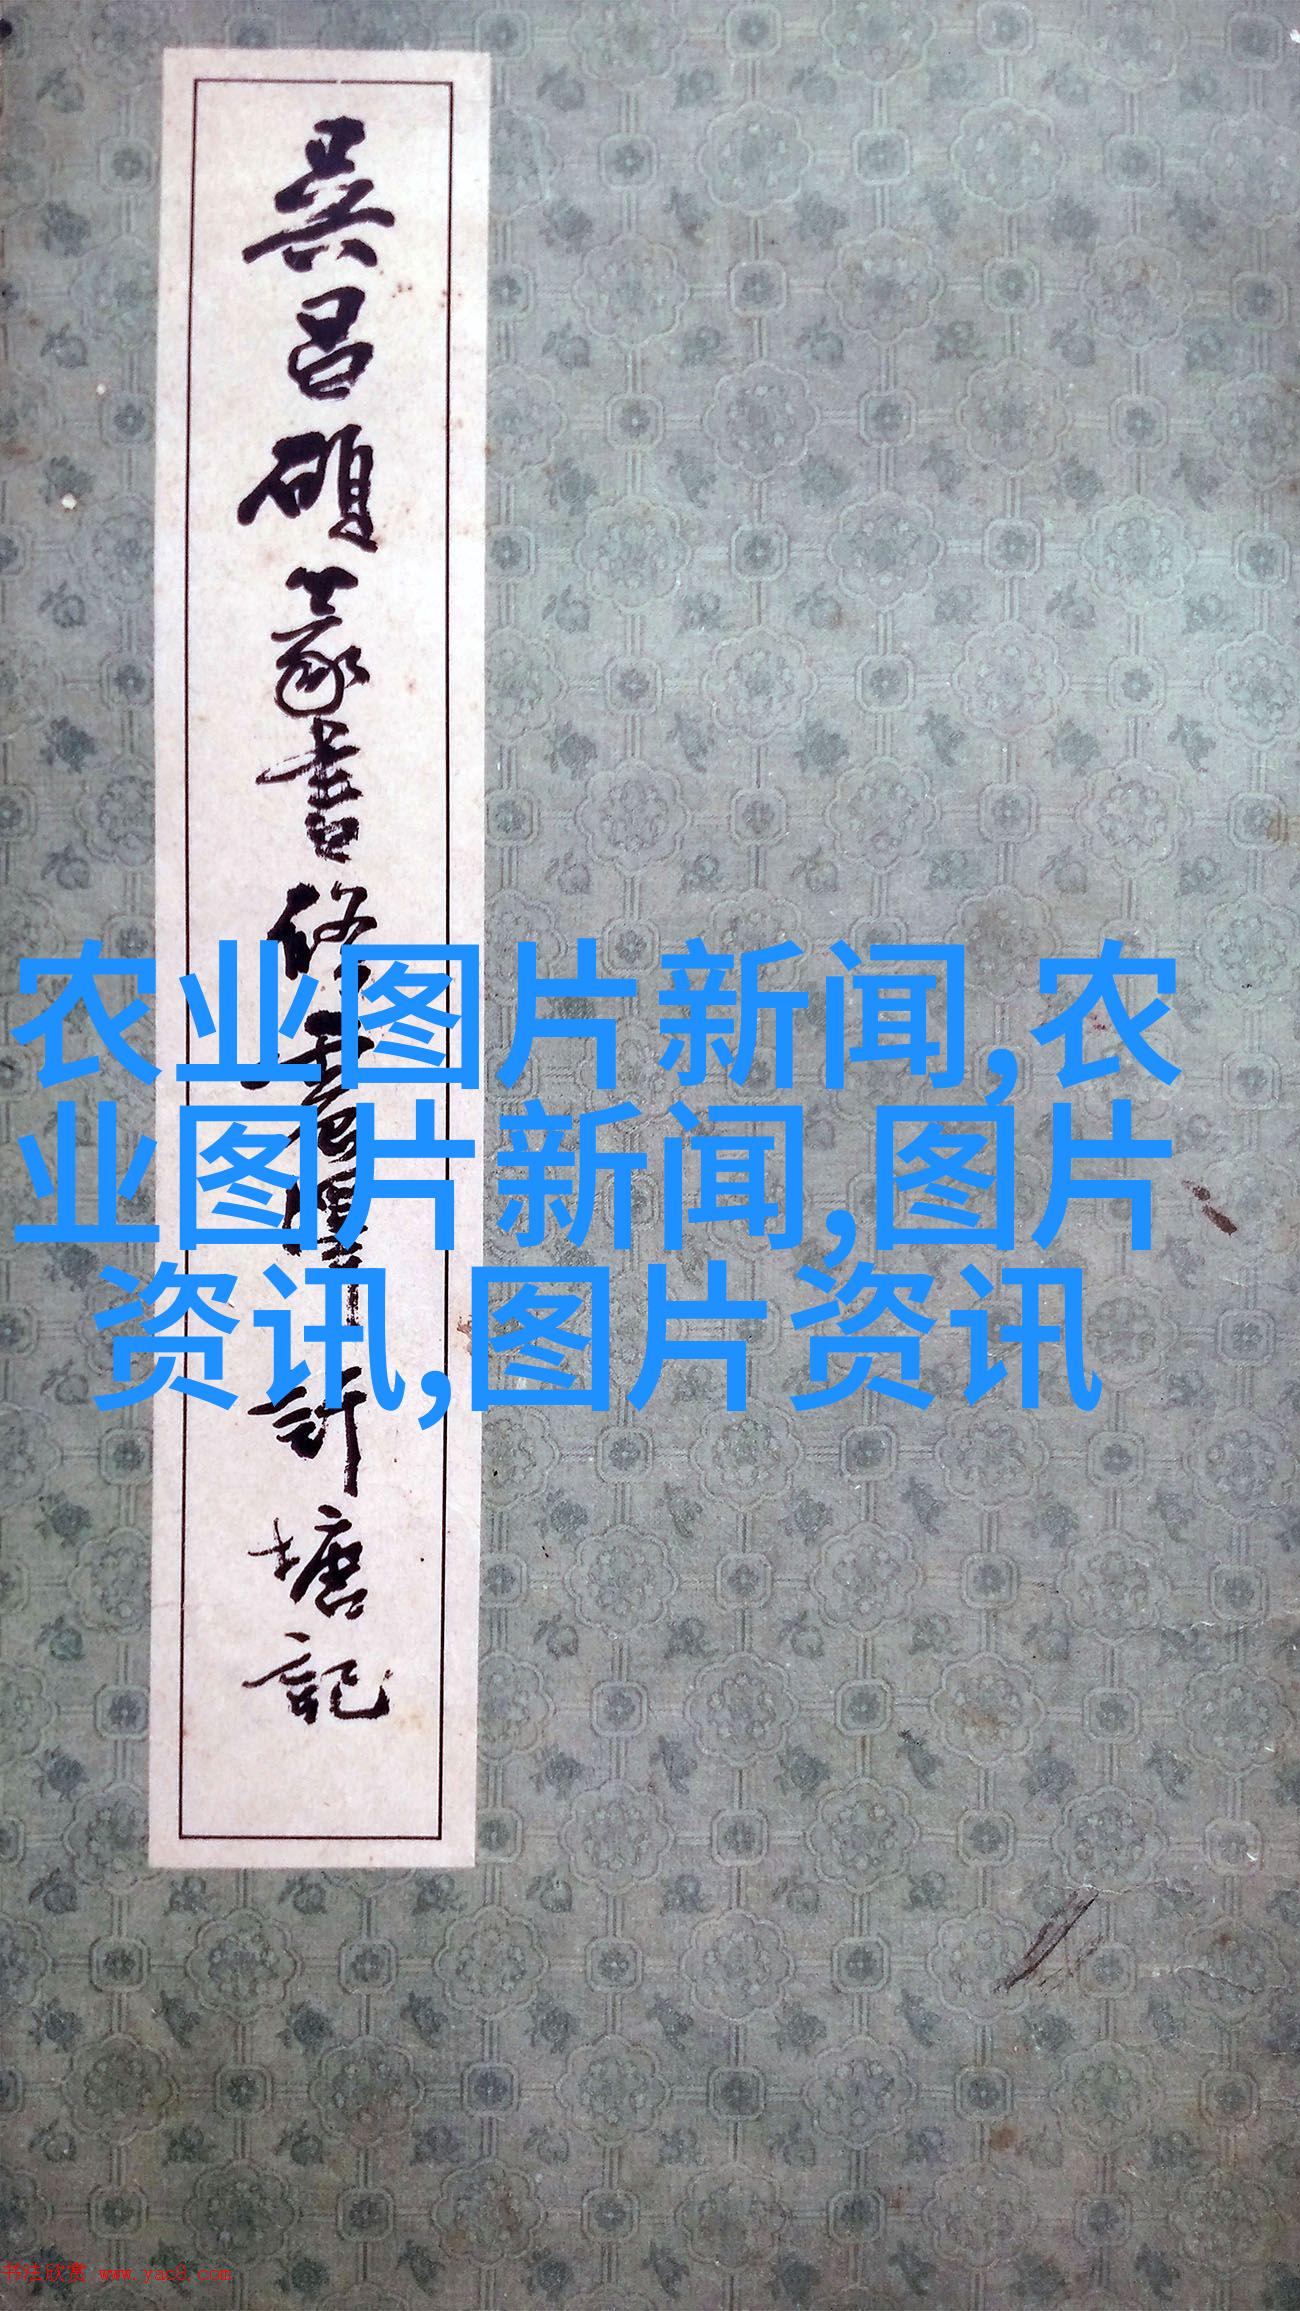 吳昌碩篆書修震澤許塘記
农业图片新闻,农
业图片新闻,图片
资讯,图片资讯
书法欣赏 www.yac8.com